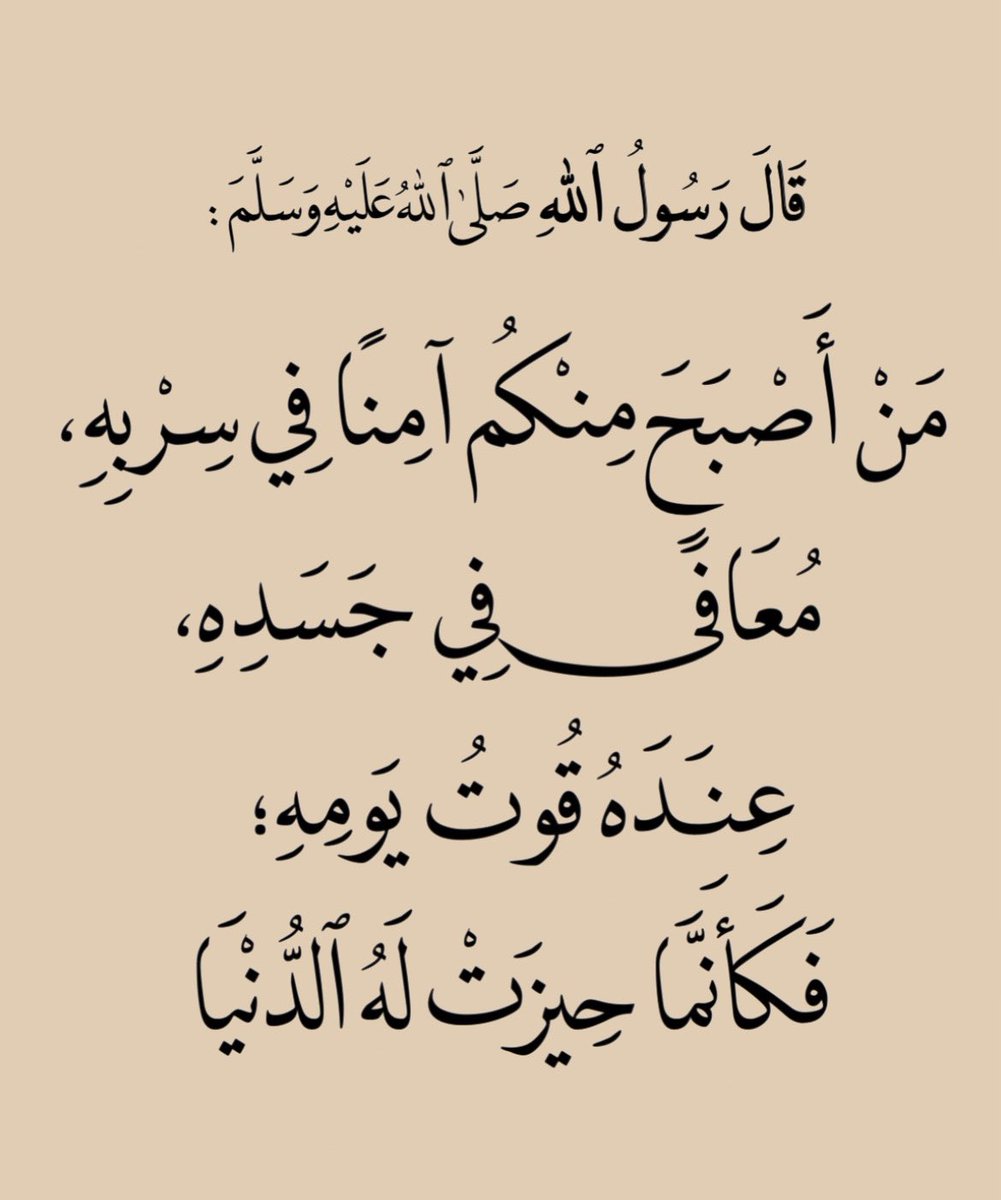 قَالَ رَسُولُ ٱللهِ صَلَّىٰ ٱللهُ عَلَيْهِ وَسَلَّمَ :
مَنْ أَصْبَحَ مِنْكُم آمِنًا فِي سِرْبِهِ،
مُعَافًى فِي جَسَدِهِ،
عِنَدَهُ قُوتُ يَومِهِ؛
فَكَأَنَّمَا حِيزَتْ لَهُ ٱلدُّنْيَا